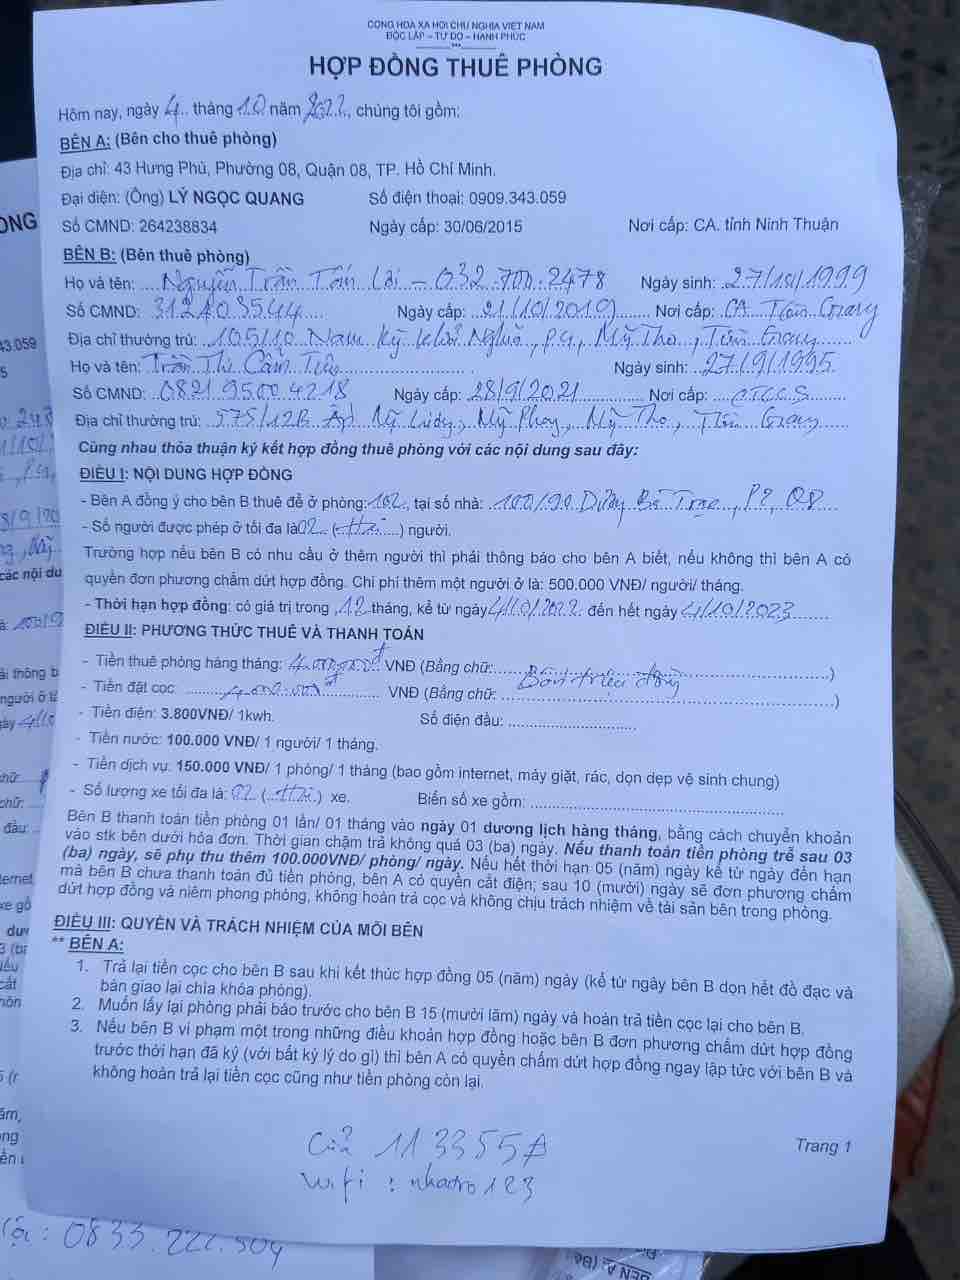 CỘNG HÒA XÃ HỘI CHỦ NGHĨA VIỆT NAM
ĐỘC LẬP – TỰ DO – HẠNH PHÚC
HỢP ĐỒNG THUÊ PHÒNG
Hôm nay, ngày 4 tháng 10 năm 2022, chúng tôi gồm:
BÊN A: (Bên cho thuê phòng)
Địa chỉ: 43 Hưng Phú, Phường 08, Quận 08, TP. Hồ Chí Minh.
Đại diện: (Ông) LÝ NGỌC QUANG Số điện thoại: 0909.343.059
Số CMND: 264238834 Ngày cấp: 30/06/2015 Nơi cấp: CA. tỉnh Ninh Thuận
BÊN B: (Bên thuê phòng)
Họ và tên: Nguyễn Trần Tấn Lợi – 032.700.2478 Ngày sinh: 27/10/1999
Số CMND: 312403544 Ngày cấp: 21/10/2019 Nơi cấp: CA Tiền Giang
Địa chỉ thường trú: 105/10 Nam Kỳ Khởi Nghĩa, P4, Mỹ Tho, Tiền Giang
Họ và tên: Trần Thị Cẩm Tiên Ngày sinh: 27/9/1995
Số CMND: 082195004218 Ngày cấp: 28/9/2021 Nơi cấp: CTCCS
Địa chỉ thường trú: 575/12B Ấp Mỹ Lương, Mỹ Phong, Mỹ Tho, Tiền Giang
Cùng nhau thỏa thuận ký kết hợp đồng thuê phòng với các nội dung sau đây:
ĐIỀU I: NỘI DUNG HỢP ĐỒNG
- Bên A đồng ý cho bên B thuê để ở phòng: 102, tại số nhà: 100/90 Dương Bá Trạc, P2, Q8
- Số người được phép ở tối đa là 02 (Hai) người.
Trường hợp nếu bên B có nhu cầu ở thêm người thì phải thông báo cho bên A biết, nếu không thì bên A có
quyền đơn phương chấm dứt hợp đồng. Chi phí thêm một người ở là: 500.000 VNĐ/ người/ tháng.
- Thời hạn hợp đồng: có giá trị trong 12 tháng, kể từ ngày 4/10/2022 đến hết ngày 4/10/2023
ĐIỀU II: PHƯƠNG THỨC THUÊ VÀ THANH TOÁN
- Tiền thuê phòng hàng tháng: 4.000.000đ VNĐ (Bằng chữ: Bốn triệu đồng)
- Tiền đặt cọc: 4.000.000đ VNĐ (Bằng chữ: )
- Tiền điện: 3.800VNĐ/ 1kwh. Số điện đầu:
- Tiền nước: 100.000 VNĐ/ 1 người/ 1 tháng.
- Tiền dịch vụ: 150.000 VNĐ/ 1 phòng/ 1 tháng (bao gồm internet, máy giặt, rác, dọn dẹp vệ sinh chung)
- Số lượng xe tối đa là: 02 (Hai) xe. Biển số xe gồm:
Bên B thanh toán tiền phòng 01 lần/ 01 tháng vào ngày 01 dương lịch hàng tháng, bằng cách chuyển khoản
vào stk bên dưới hóa đơn. Thời gian chậm trả không quá 03 (ba) ngày. Nếu thanh toán tiền phòng trễ sau 03
(ba) ngày, sẽ phụ thu thêm 100.000VNĐ/ phòng/ ngày. Nếu hết thời hạn 05 (năm) ngày kể từ ngày đến hạn
mà bên B chưa thanh toán đủ tiền phòng, bên A có quyền cắt điện; sau 10 (mười) ngày sẽ đơn phương chấm
dứt hợp đồng và niêm phong phòng, không hoàn trả cọc và không chịu trách nhiệm về tài sản bên trong phòng.
ĐIỀU III: QUYỀN VÀ TRÁCH NHIỆM CỦA MỖI BÊN
** BÊN A:
1. Trả lại tiền cọc cho bên B sau khi kết thúc hợp đồng 05 (năm) ngày (kể từ ngày bên B dọn hết đồ đạc và
bàn giao lại chìa khóa phòng).
2. Muốn lấy lại phòng phải báo trước cho bên B 15 (mười lăm) ngày và hoàn trả tiền cọc lại cho bên B.
3. Nếu bên B vi phạm một trong những điều khoản hợp đồng hoặc bên B đơn phương chấm dứt hợp đồng
trước thời hạn đã ký (với bất kỳ lý do gì) thì bên A có quyền chấm dứt hợp đồng ngay lập tức với bên B và
không hoàn trả lại tiền cọc cũng như tiền phòng còn lại.
Cửa 113355A
Wifi : nhatro123
Trang 1
: 0833.222.504